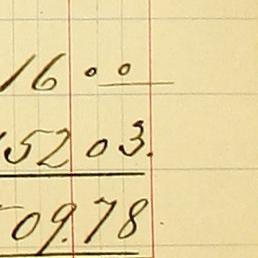 16 00
52 03.
09.78